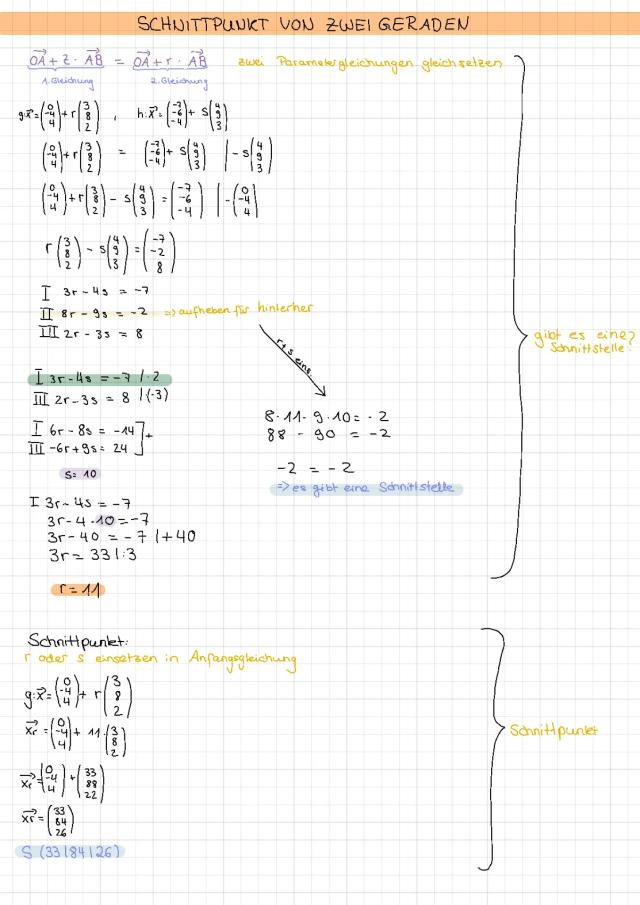 SCHNITTPUNKT VON ZWEI GERADEN
OA + z · AB = OA + r · AB zwei Parametergleichungen gleichsetzen
1. Gleichung 2. Gleichung
g: x⃗ = (0 -4 4) + r (3 8 2) , h: x⃗ = (-7 -6 -4) + s (4 9 3)
(0 -4 4) + r (3 8 2) = (-7 -6 -4) + s (4 9 3) | - s (4 9 3)
(0 -4 4) + r (3 8 2) - s (4 9 3) = (-7 -6 -4) | - (0 -4 4)
r (3 8 2) - s (4 9 3) = (-7 -2 8)
I 3r - 4s = -7
II 8r - 9s = -2 => aufheben für hinterher
III 2r - 3s = 8
r + s eins.
gibt es eine?
Schnittstelle?
I 3r - 4s = -7 | · 2
III 2r - 3s = 8 | (-3)
I 6r - 8s = -14 ] +
III -6r + 9s = 24
s = 10
8 · 11 - 9 · 10 = -2
88 - 90 = -2
-2 = -2
=> es gibt eine Schnittstelle
I 3r - 4s = -7
3r - 4 · 10 = -7
3r - 40 = -7 | + 40
3r = 33 | : 3
r = 11
Schnittpunkt:
r oder s einsetzen in Anfangsgleichung
g: x⃗ = (0 -4 4) + r (3 8 2)
xr = (0 -4 4) + 11 · (3 8 2)
xr = (0 -4 4) + (33 88 22)
xr = (33 84 26)
S (33|84|26)
Schnittpunkt